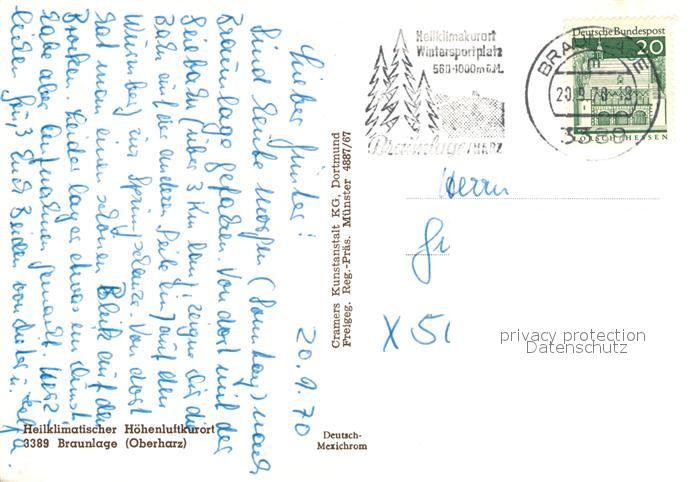 20.9.70
Lieber Günter!
Sind heute morgen (Sonntag) nach
Braunlage gefahren. Von dort mit der
Seilbahn (über 3 km lang, zeigne dir die
Bahn auf der anderen Seite ein) auf den
Wurmberg zur Sprungschanze. Von dort
hat man einen schönen Blick auf den
Brocken. Leider lag er etwas im Dunst.
Habe aber Aufnahmen gemacht. Herz-
lichen Gruß Euch Beiden von Dieter u. Helga.
Heilklimatischer Höhenluftkurort
3389 Braunlage (Oberharz)
Deutsch-
Mexichrom
Cramers Kunstanstalt KG, Dortmund
Freigeg. Reg.-Präs. Münster 4887/67
Heilklimakurort
Wintersportplatz
560-1000m ü.M.
Braunlage/HARZ
BRAUNLAGE
20.9.70-18
3389
Deutsche Bundespost
20
LORSCH/HESSEN
Herrn
X 51
privacy protection
Datenschutz